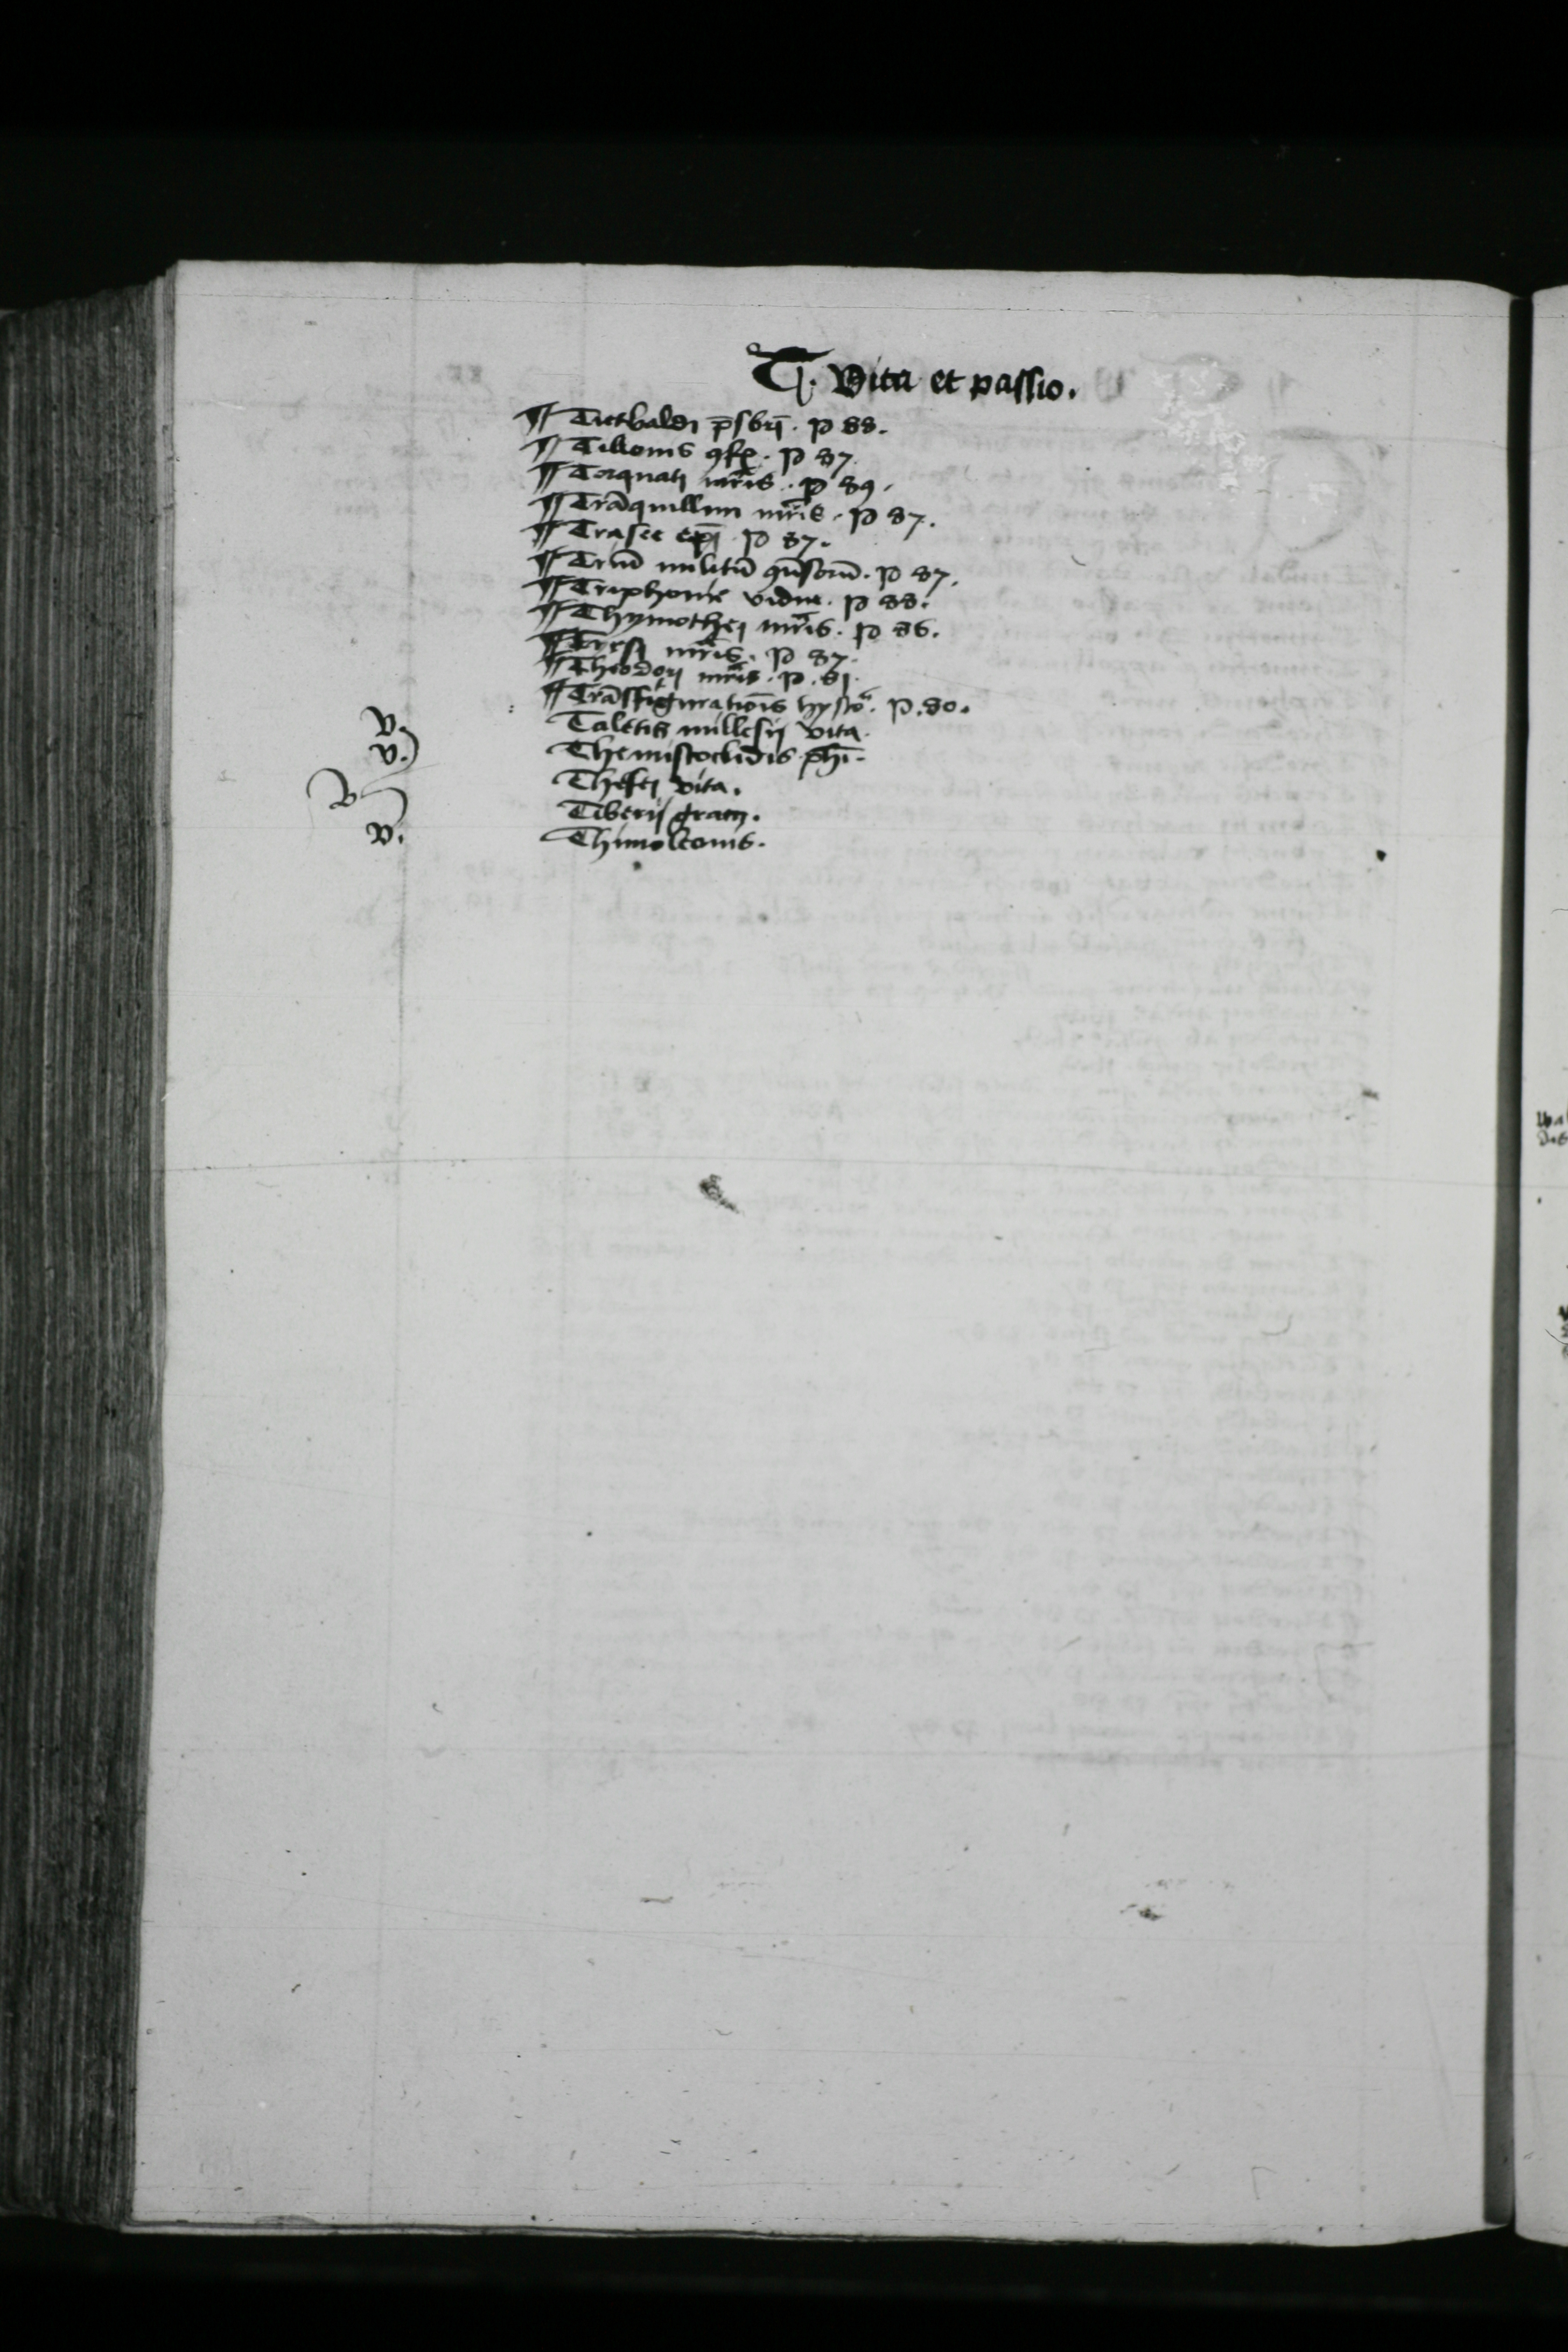 T. Vita et passio.
¶ Tietbaldi p̄sbrī. p 88.
¶ Tillonis ꝯfꝭ. p 87.
¶ Torquati mr̄is. p 89.
¶ Trāquillini mr̄is. p 87.
¶ Trasee ep̄i. p 87.
¶ Triū militū qūsorū. p 87.
¶ Triphonie vidue. p 88.
¶ Thymothei mr̄is. p 86.
¶ Tyrsi mr̄is. p 87.
¶ Theodori mr̄is. p. 81.
¶ Trāsfiguratiōis hystoͣ. p. 80.
v. Taletis millesij vita.
v. Themistoclidis phī.
Thesei vita.
Tiberij gracij.
v. Thimoleonis.